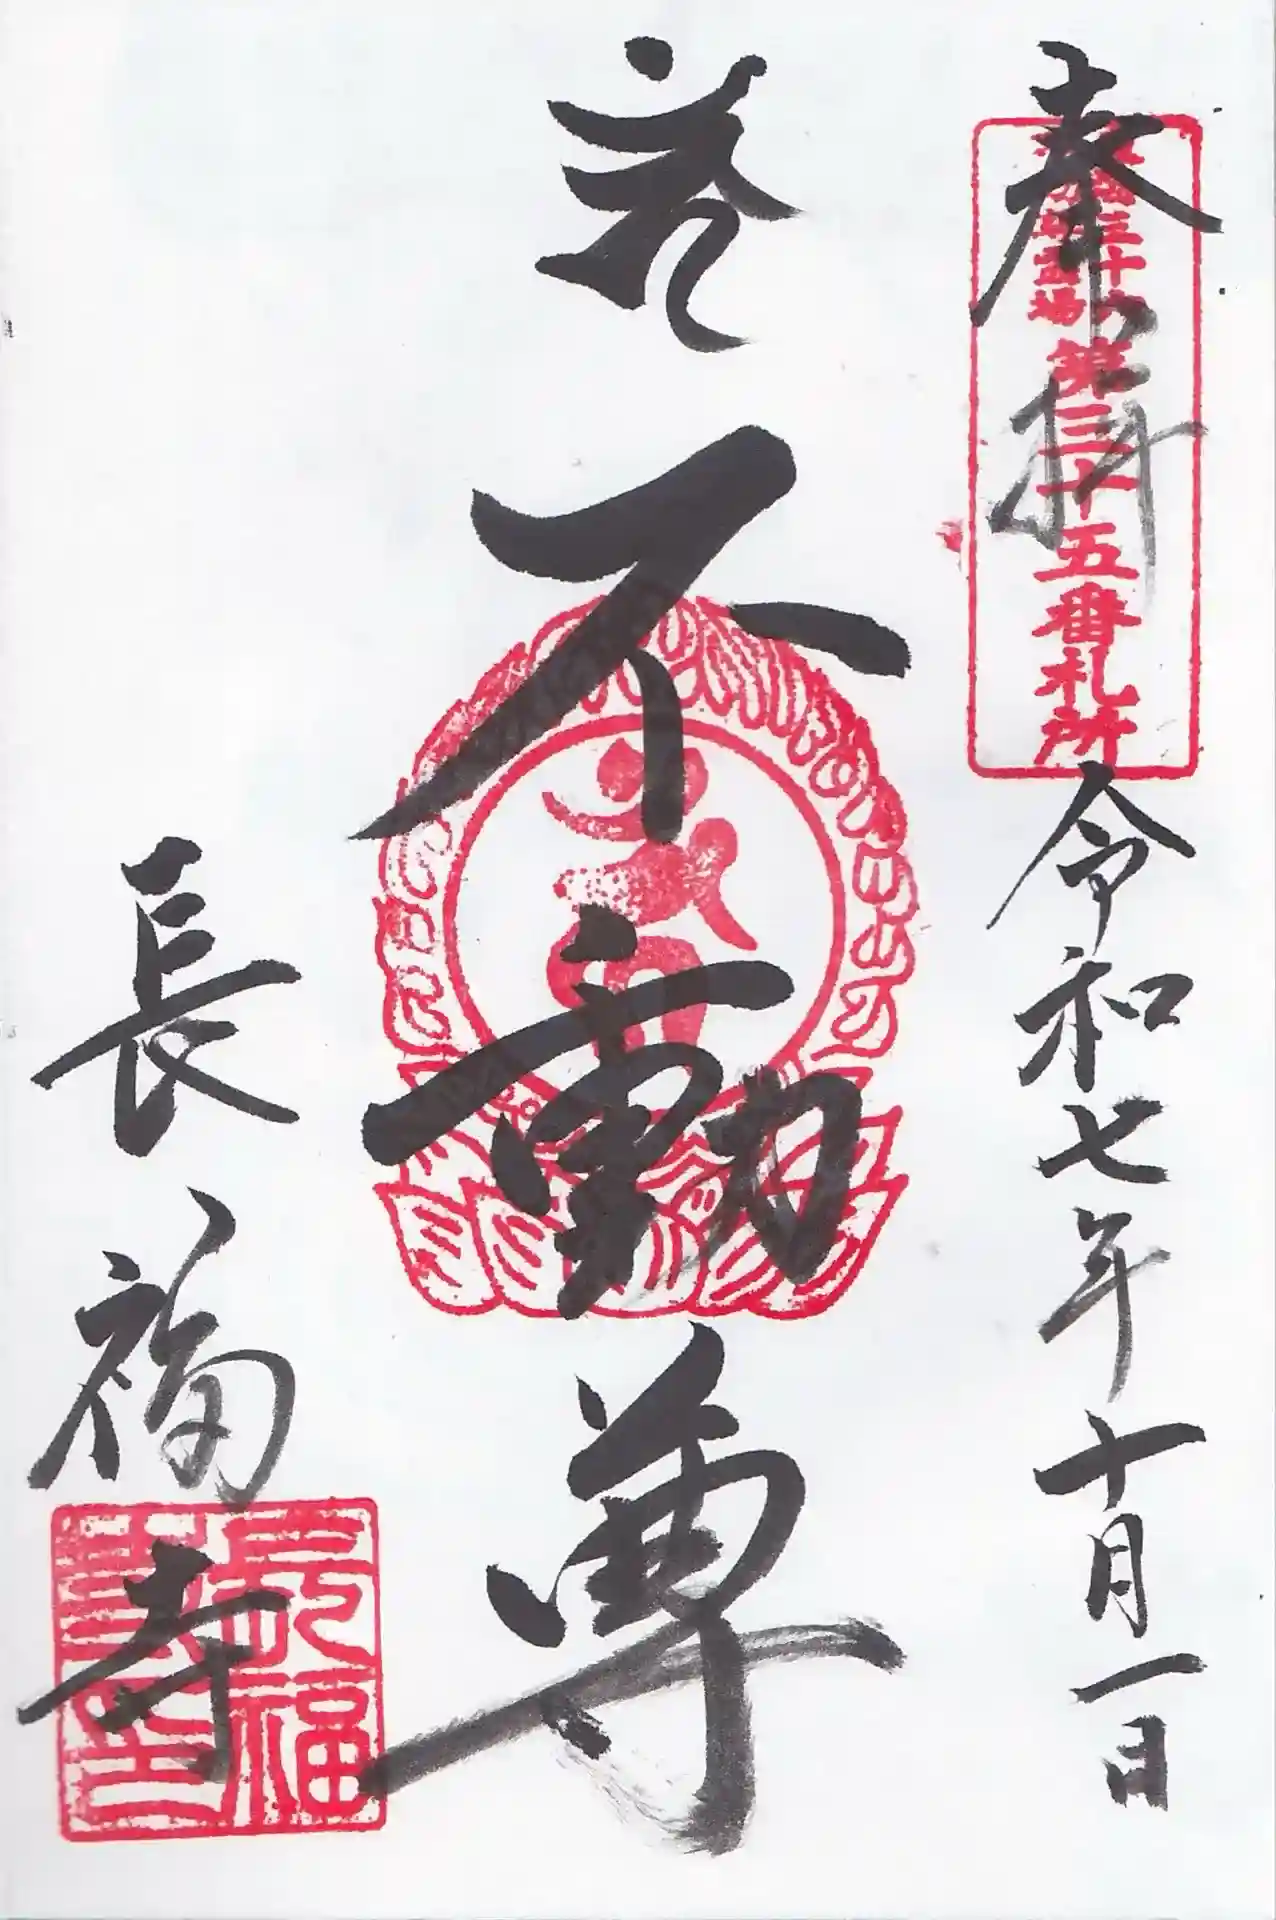 奉拝
三十六
霊場
第三十五番札所
令和七年十月一日
不動尊
長福寺
長福
寺印